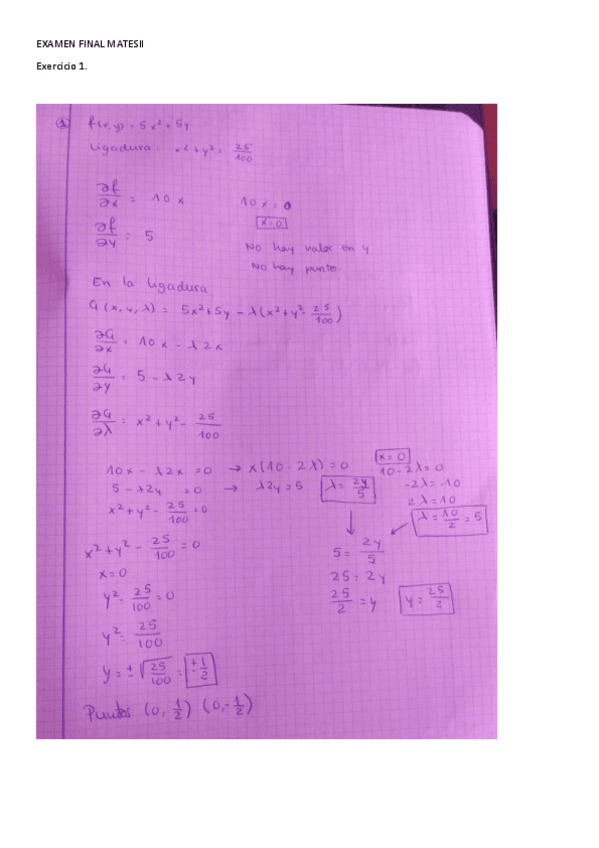 EXAMEN FINAL MATESII
Exercicio 1.
① f(x,y) = 5x² + 5y
Ligadura: x² + y² = 25/100
∂f/∂x = 10x
10x = 0
x = 0
∂f/∂y = 5
No hay valor en y
No hay punto.
En la ligadura
G(x,y,λ) = 5x² + 5y - λ(x² + y² - 25/100)
∂G/∂x = 10x - λ2x
∂G/∂y = 5 - λ2y
∂G/∂λ = x² + y² - 25/100
10x - λ2x = 0 → x(10 - 2λ) = 0
x = 0
10 - 2λ = 0
5 - λ2y = 0 → λ2y = 5
λ = 2y/5
-2λ = -10
2λ = 10
x² + y² - 25/100 = 0
λ = 10/2 = 5
x² + y² - 25/100 = 0
x = 0
y² - 25/100 = 0
y² = 25/100
y = ±√25/100 = ±1/2
5 = 2y/5
25 = 2y
25/2 = y
y = 25/2
Puntos (0, 1/2) (0, -1/2)